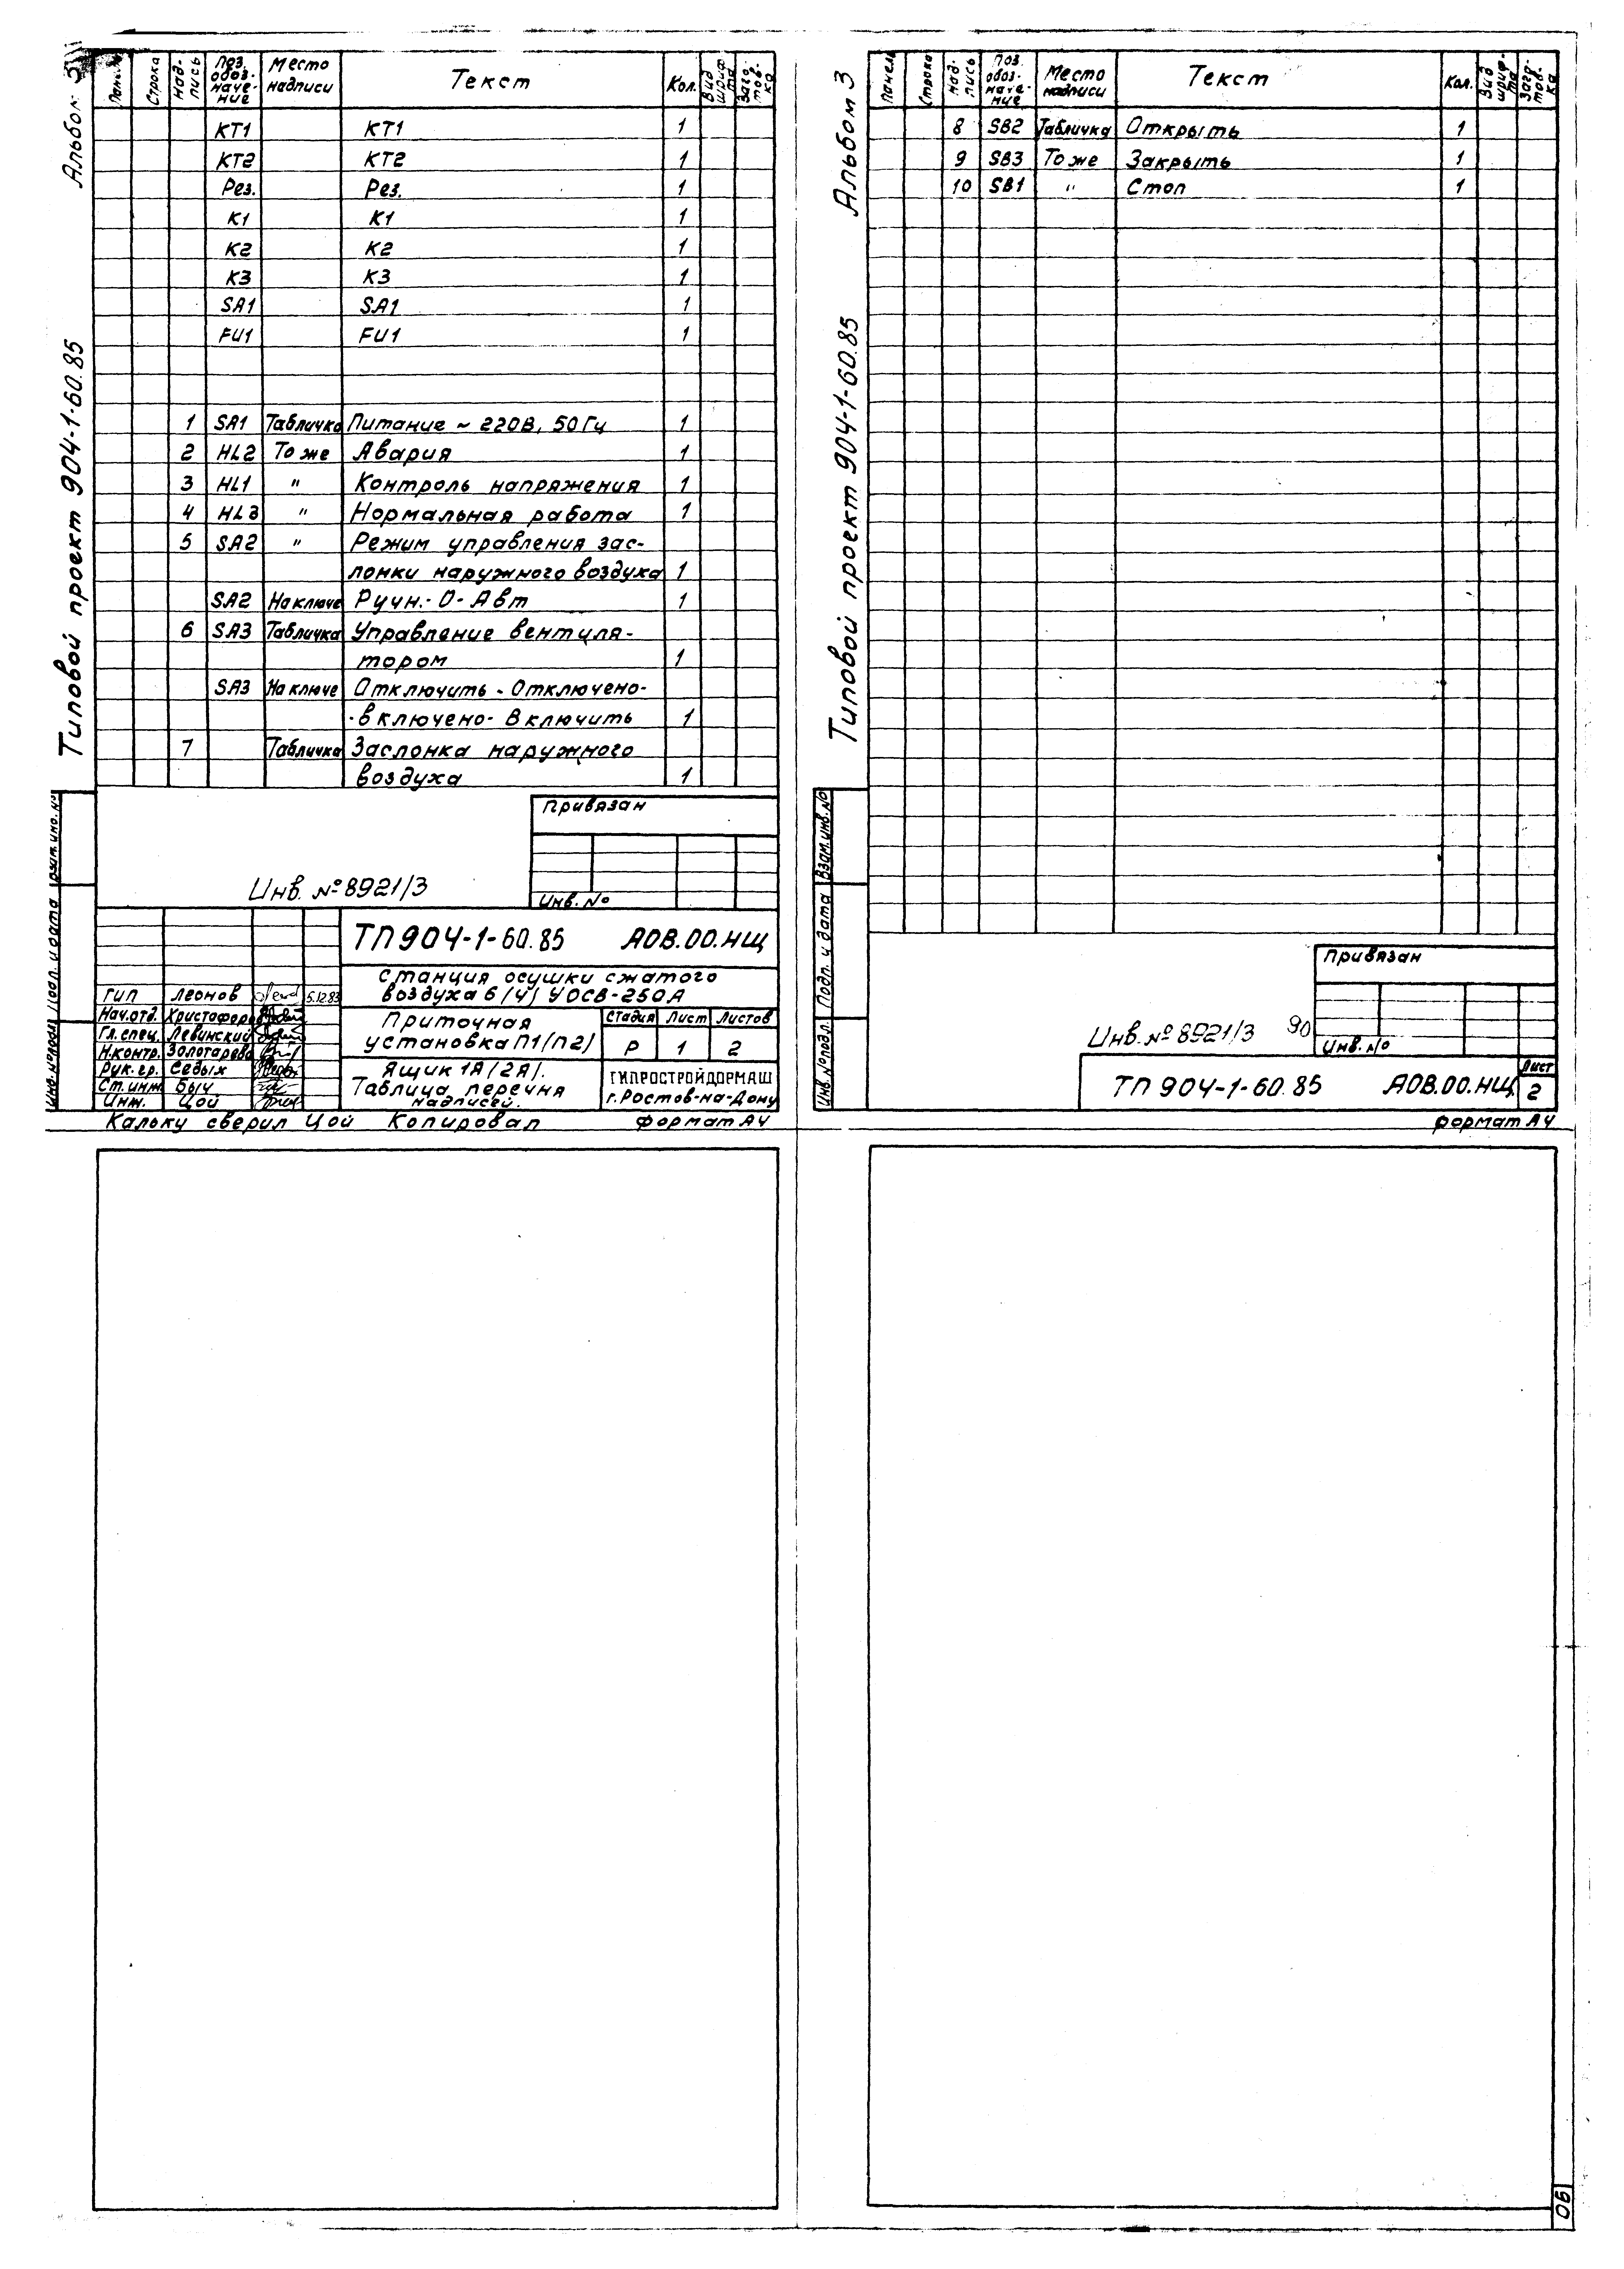 Альбом 3
Типовой проект 904-1-60.85
Строка Над-пись Поз. обоз-наче-ние Место надписи Текст Кол. Вид шриф та Заго-тов-ка
КТ1 КТ1 1
КТ2 КТ2 1
Рез. Рез. 1
К1 К1 1
К2 К2 1
К3 К3 1
SA1 SA1 1
FU1 FU1 1
1 SA1 Табличка Питание ~ 220В, 50Гц 1
2 HL2 То же Авария 1
3 HL1 " Контроль напряжения 1
4 HL3 " Нормальная работа 1
5 SA2 " Режим управления зас-
лонки наружного воздуха 1
SA2 На ключе Ручн.-О-Авт 1
6 SA3 Табличка Управление вентиля-
тором 1
SA3 На ключе Отключить - Отключено-
-включено- Включить 1
7 Табличка Заслонка наружного
воздуха 1
Привязан
Инв. №
Инв. № 8921/3
ТП 904-1-60.85 АОВ.00.НЩ
Станция осушки сжатого
воздуха 6/4/ УОСВ-250А
ГИП Леонов 5.12.83
Нач.отд. Христофоро
Гл.спец. Левинский
Н.контр. Золотарева
Рук.гр. Седых
Ст.инж Быч
Инж. Цой
Приточная
установка П1/П2/
Стадия Лист Листов
Р 1 2
Ящик 1Я/2Я/.
Таблица перечня
надписей.
ГИПРОСТРОЙДОРМАШ
г.Ростов-на-Дону
Инв. № подл. Подп. и дата Взам. инв. №
Кальку сверил Цой Копировал формат А4
Альбом 3
Типовой проект 904-1-60.85
Панель Строка Над-пись Поз. обоз-наче-ние Место надписи Текст Кол. Вид шриф-та Заго-тов-ка
8 SB2 Табличка Открыть 1
9 SB3 То же Закрыть 1
10 SB1 " Стоп 1
Взам. инв. №
Подп. и дата
Инв. № подл.
Привязан
Инв. №
Инв. № 8921/3 90
ТП 904-1-60.85 АОВ.00.НЩ
Лист
2
формат А4
90